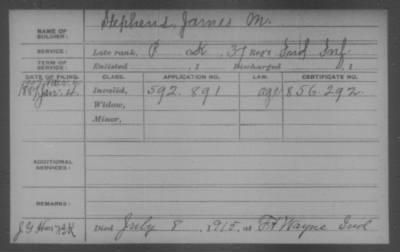 NAME OF SOLDIER: Stephens, James M.
SERVICE: Late rank, P K, 37 Reg't Ind Inf.
TERM OF SERVICE: Enlisted , 1 Discharged , 1
DATE OF FILING. CLASS. APPLICATION NO. LAW. CERTIFICATE NO.
1887 Jan. 12 Invalid, 592.891 age 856.292
Widow,
Minor,
ADDITIONAL SERVICES:
REMARKS:
Died July 8, 1915, at Ft Wayne Ind